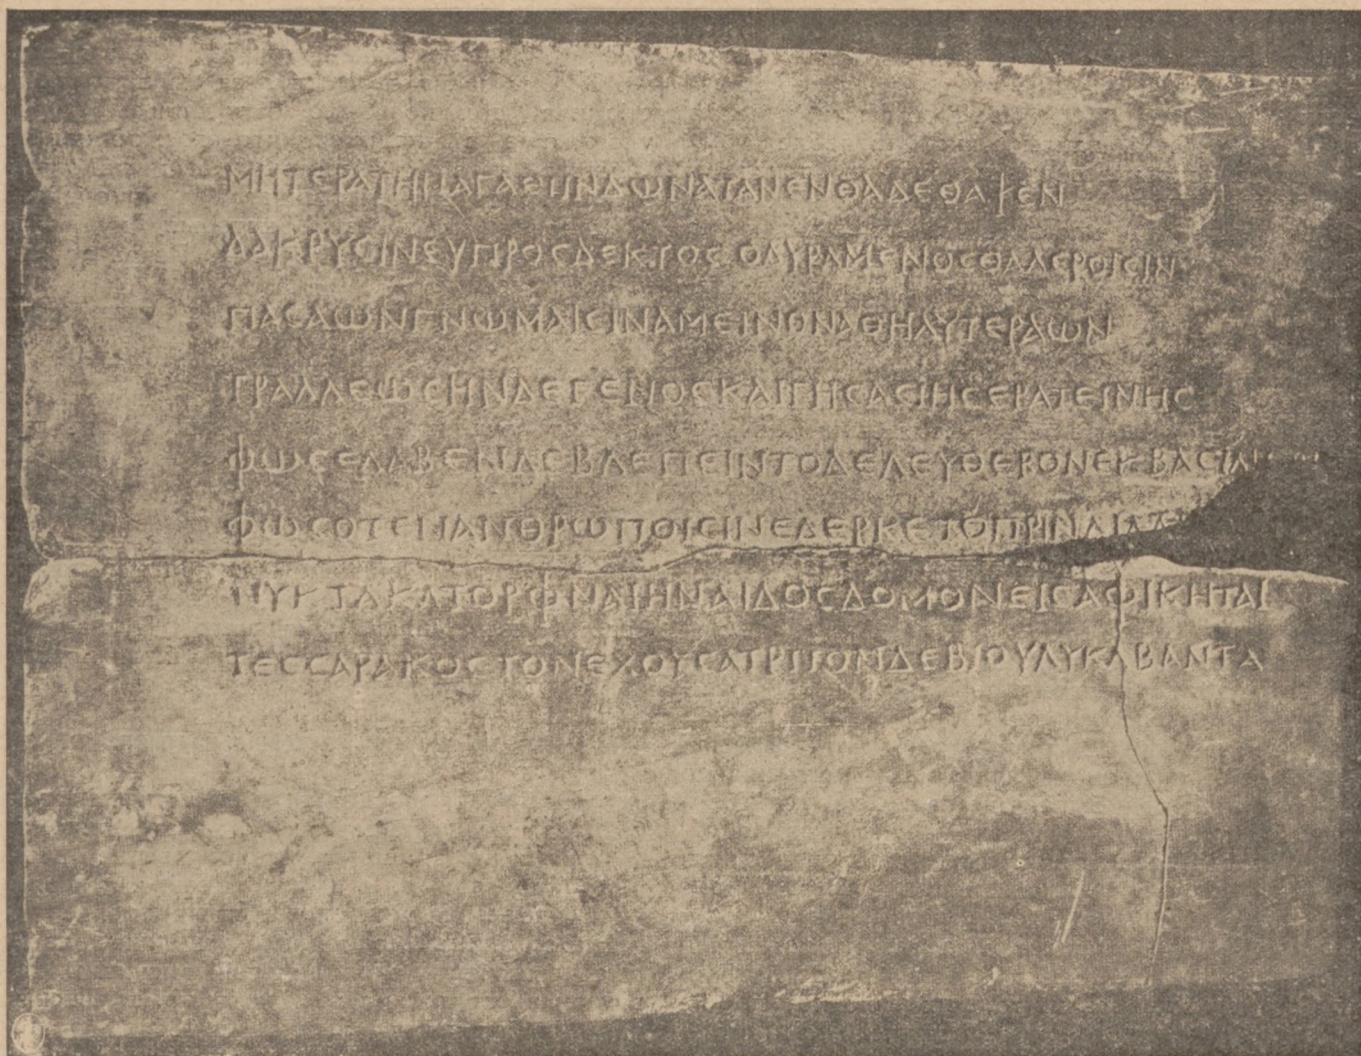 ΜΗΤΕΡΑΤΗΝΑΓΑΘΗΝΔΩΝΑΤΑΝΕΝΘΑΔΕΘΑΨΕΝ
ΔΑΚΡΥCΙΝΕΥΠΡΟCΔΕΚΤΟCΟΔΥΡΑΜΕΝΟCΘΑΛΕΡΟΙCΙΝ
ΠΑCΑΩΝΓΝΩΜΑΙCΙΝΑΜΕΙΝΟΝΑΘΗΛΥΤΕΡΑΩΝ
ΤΡΑΛΛΕΩCΗΝΔΕΓΕΝΟCΚΑΙΓΗCΑCΙΗCΕΡΑΤΕΙΝΗC
ΦΩCΕΛΑΒΕΝΔΕΒΛΕΠΕΙΝΤΟΔΕΛΕΥΘΕΡΟΝΕΚΒΑCΙΛ
ΦΩCΟΤΕΙΝΑΝΘΡΩΠΟΙCΙΝΕΔΕΡΚΕΤΟΠΡΙΝ
ΝΥΚΤΑΚΑΤΟΡΦΝΑΙΗΝΑΙΔΟCΔΟΜΟΝΕΙCΑΦΙΚΗΤΑΙ
ΤΕCCΑΡΑΚΟCΤΟΝΕΧΟΥCΑΤΡΙΤΟΝΔΕΒΙΟΥΛΥΚΑΒΑΝΤΑ